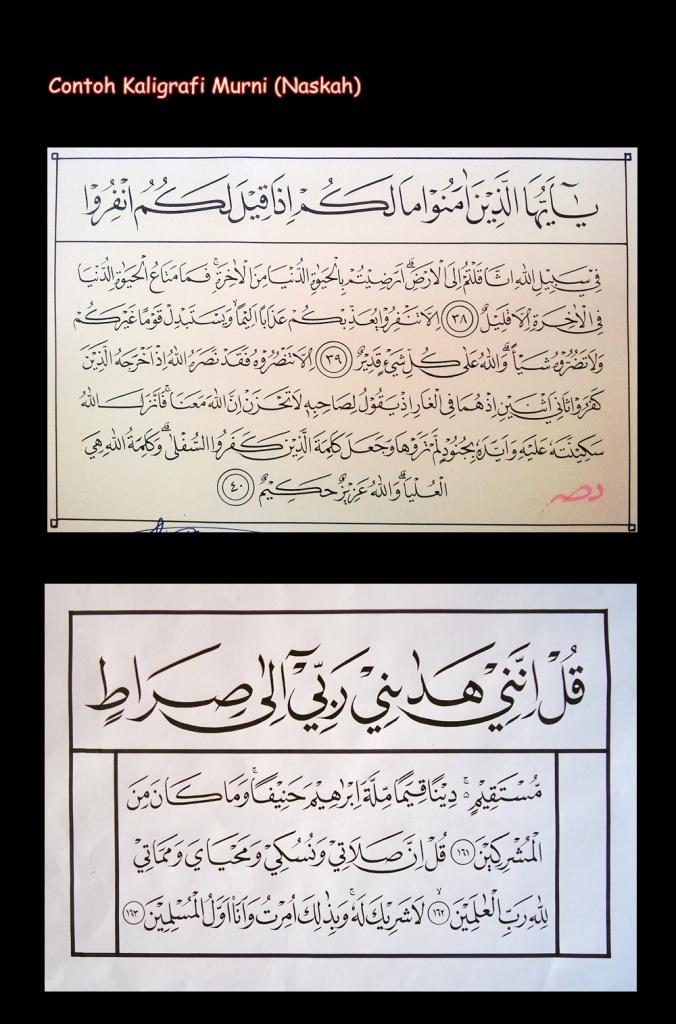 Contoh Kaligrafi Murni (Naskah)
يٰٓاَيُّهَا الَّذِيْنَ اٰمَنُوْا مَا لَكُمْ اِذَا قِيْلَ لَكُمُ انْفِرُوْا
فِيْ سَبِيْلِ اللهِ اثَّاقَلْتُمْ اِلَى الْاَرْضِۗ اَرَضِيْتُمْ بِالْحَيٰوةِ الدُّنْيَا مِنَ الْاٰخِرَةِۚ فَمَا مَتَاعُ الْحَيٰوةِ الدُّنْيَا
فِى الْاٰخِرَةِ اِلَّا قَلِيْلٌ ٣٨ اِلَّا تَنْفِرُوْا يُعَذِّبْكُمْ عَذَابًا اَلِيْمًا وَّيَسْتَبْدِلْ قَوْمًا غَيْرَكُمْ
وَلَا تَضُرُّوْهُ شَيْـًٔاۗ وَاللهُ عَلٰى كُلِّ شَيْءٍ قَدِيْرٌ ٣٩ اِلَّا تَنْصُرُوْهُ فَقَدْ نَصَرَهُ اللهُ اِذْ اَخْرَجَهُ الَّذِيْنَ
كَفَرُوْا ثَانِيَ اثْنَيْنِ اِذْ هُمَا فِى الْغَارِ اِذْ يَقُوْلُ لِصَاحِبِهٖ لَا تَحْزَنْ اِنَّ اللهَ مَعَنَاۚ فَاَنْزَلَ اللهُ
سَكِيْنَتَهٗ عَلَيْهِ وَاَيَّدَهٗ بِجُنُوْدٍ لَّمْ تَرَوْهَا وَجَعَلَ كَلِمَةَ الَّذِيْنَ كَفَرُوا السُّفْلٰىۗ وَكَلِمَةُ اللهِ هِيَ
الْعُلْيَاۗ وَاللهُ عَزِيْزٌ حَكِيْمٌ ٤٠
قُلْ اِنَّنِيْ هَدٰىنِيْ رَبِّيْٓ اِلٰى صِرَاطٍ
مُّسْتَقِيْمٍۚ دِيْنًا قِيَمًا مِّلَّةَ اِبْرٰهِيْمَ حَنِيْفًاۚ وَمَا كَانَ مِنَ
الْمُشْرِكِيْنَ ١٦١ قُلْ اِنَّ صَلَاتِيْ وَنُسُكِيْ وَمَحْيَايَ وَمَمَاتِيْ
لِلهِ رَبِّ الْعٰلَمِيْنَ ١٦٢ لَا شَرِيْكَ لَهٗۚ وَبِذٰلِكَ اُمِرْتُ وَاَنَا۠ اَوَّلُ الْمُسْلِمِيْنَ ١٦٣